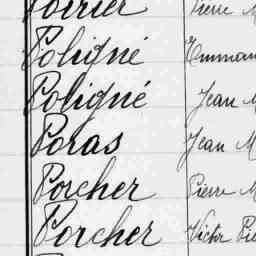 Poirier Pierre M
Poligné Emman
Poligné Jean M
Poras Jean M
Porcher Pierre M
Porcher Victor Pie